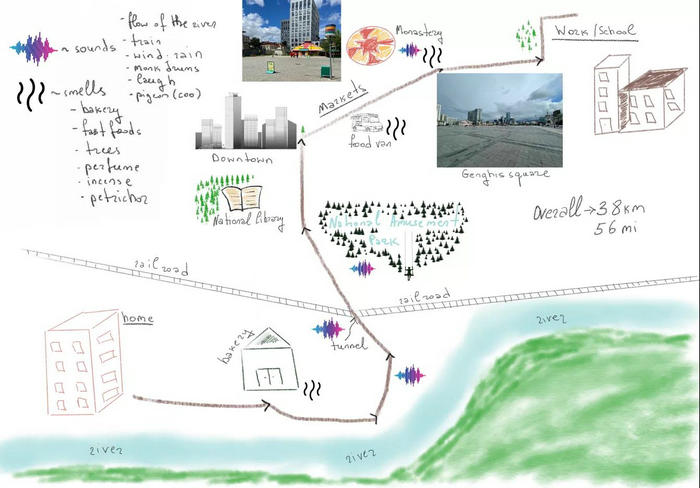 ~ sounds
- flow of the river
- train
- wind: rain
- monk drums
- laugh
- pigeon (coo)
~ smells
- bakery
- fast foods
- trees
- perfume
- incense
- petrichor
Monastery
Work/School
Markets
Downtown
food van
Genghis square
National Library
National Amusement
Park
Overall → 3.8 km
56 mi
railroad
railroad
home
bakery
tunnel
river
river
river